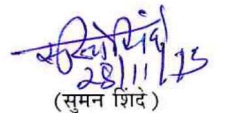 28/11/13
(सुमन शिंदे)